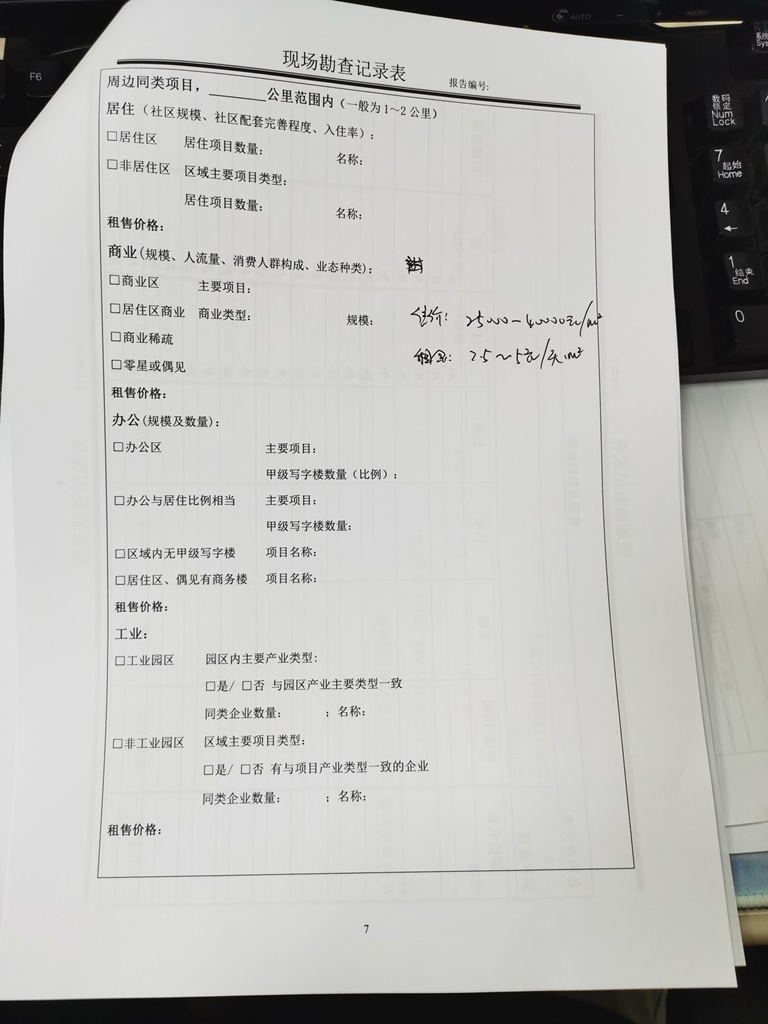 AUTO
MENU
F6
数码
锁定
Num
Lock
7 起始
Home
4
←
1 结束
End
0
现场勘查记录表
报告编号:
周边同类项目，______公里范围内（一般为1～2公里）
居住（社区规模、社区配套完善程度、入住率）:
□居住区 居住项目数量: 名称:
□非居住区 区域主要项目类型:
居住项目数量: 名称:
租售价格:
商业(规模、人流量、消费人群构成、业态种类):
□商业区 主要项目:
□居住区商业 商业类型: 规模: 售价: 25000-40000元/m²
□商业稀疏 租金: 2.5~5元/天/m²
□零星或偶见
租售价格:
办公(规模及数量):
□办公区 主要项目:
甲级写字楼数量（比例）:
□办公与居住比例相当 主要项目:
甲级写字楼数量:
□区域内无甲级写字楼 项目名称:
□居住区、偶见有商务楼 项目名称:
租售价格:
工业:
□工业园区 园区内主要产业类型:
□是/ □否 与园区产业主要类型一致
同类企业数量: ；名称:
□非工业园区 区域主要项目类型:
□是/ □否 有与项目产业类型一致的企业
同类企业数量: ；名称:
租售价格:
7